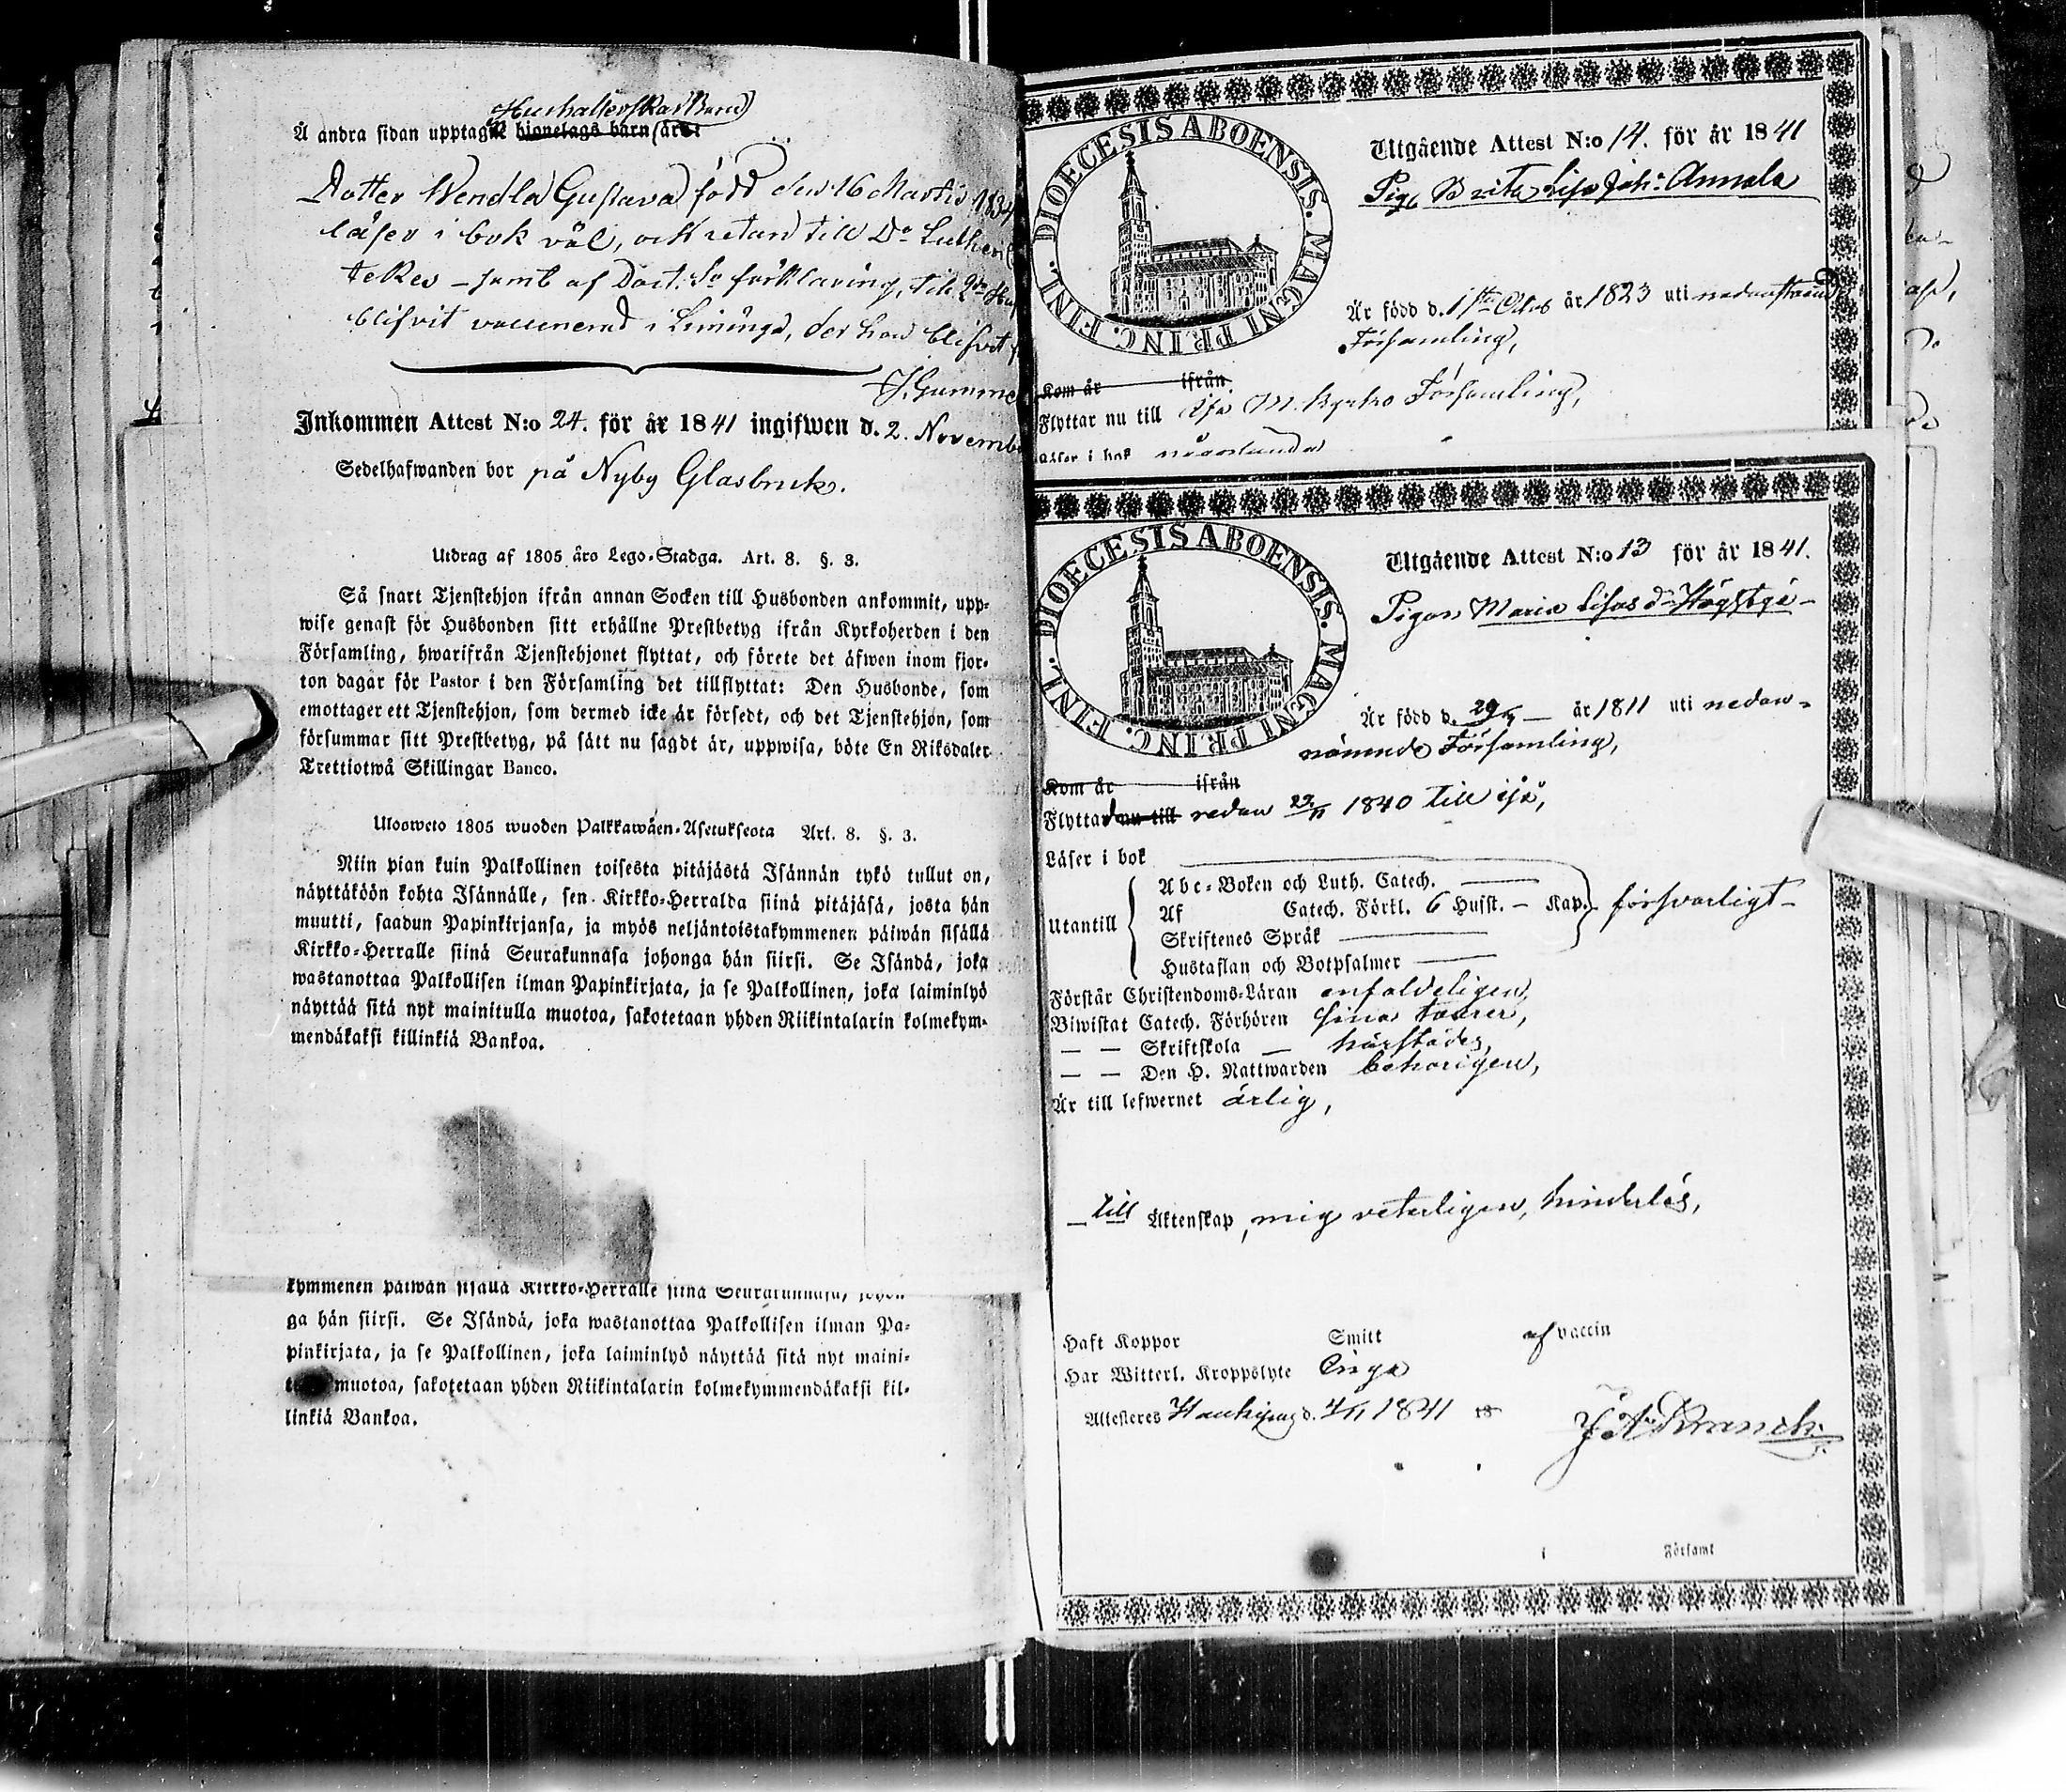 Hushållerskas Barn
Å andra sidan upptagne hjonelags barn (är:
Dotter Wendla Gustava född den 16 Martii 1834
läser i bok väl, och utan till Do Lutheri
blifvit vaccinerad i Limingo, der hon blifvit
J. Gumme
Inkommen Attest N:o 24. för år 1841 ingifwen d. 2. Novemb
Sedelhafwanden bor på Nyby Glasbruk.
Utdrag af 1805 års Lego-Stadga. Art. 8. §. 3.
Så snart Tjenstehjon ifrån annan Socken till Husbonden ankommit, upp-
wise genast för Husbonden sitt erhållne Prestbetyg ifrån Kyrkoherden i den
Församling, hwarifrån Tjenstehjonet flyttat, och förete det äfwen inom fjor-
ton dagar för Pastor i den Församling det tillflyttat: Den Husbonde, som
emottager ett Tjenstehjon, som dermed icke är försedt, och det Tjenstehjon, som
försummar sitt Prestbetyg, på sätt nu sagdt är, uppwisa, böte En Riksdaler
Trettiotwå Skillingar Banco.
Ulosweto 1805 wuoden Palkkawäen-Asetuksesta Art. 8. §. 3.
Niin pian kuin Palkollinen toisesta pitäjästä Isännän tykö tullut on,
näyttäköön kohta Isännälle, sen Kirkko-Herralda siinä pitäjäsä, josta hän
muutti, saadun Papinkirjansa, ja myös neljäntoistakymmenen päiwän sisällä
Kirkko-Herralle siinä Seurakunnasa johonga hän siirsi. Se Isändä, joka
wastanottaa Palkollisen ilman Papinkirjata, ja se Palkollinen, joka laiminlyö
näyttää sitä nyt mainitulla muotoa, sakotetaan yhden Riikintalarin kolmekym-
mendäkaksi killinkiä Bankoa.
kymmenen päiwän sisällä Kirkko-Herralle siinä Seurakunnasa, johon
ga hän siirsi. Se Isändä, joka wastanottaa Palkollisen ilman Pa-
pinkirjata, ja se Palkollinen, joka laiminlyö näyttää sitä nyt maini-
muotoa, sakotetaan yhden Riikintalarin kolmekymmendäkaksi kil-
linkiä Bankoa.
DIOECESIS ABOENSIS. MAGNI PR.INC. FINL.
Utgående Attest N:o 14. för år 1841
Pig. Brita Lisa Joh: Annala
Är född d. 1sta Octob år 1823 uti nedanstående
Församling,
Kom år ifrån
Flyttar nu till M. Kyrko Församling,
äser i bok någorlunda
DIOECESIS ABOENSIS. MAGNI PR.INC. FINL.
Utgående Attest N:o 13 för år 1841.
Pigan Maria Lisas dr
Är född d. 29 år 1811 uti nedan-
nämnde Församling,
Kom år ifrån
Flyttade nu till redan 22/11 1840 till
Läser i bok
Abc-Boken och Luth. Catech.
Utantill Af Catech. Förkl. 6 Hufst. – Kap. försvarligt –
Skriftenes Språk
Hustaflan och Botpsalmer
Förstår Christendoms-Läran enfaldeligen,
Biwistat Catech. Förhören sina tourer,
— — Skriftskola — härstädes,
— — Den H. Nattwarden behörigen,
Är till lefwernet ärlig,
— till Äktenskap, mig veterligen, hinderlös,
Haft Koppor Smitt af vaccin
Har Witterl. Kroppslyte Inga
Attesteras d. 4/11 1841 18
J A Kranck.
i Församl